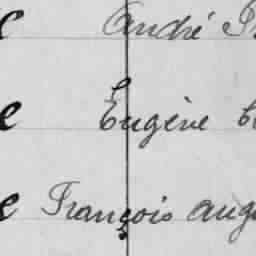 e André
e Eugène
e François aug